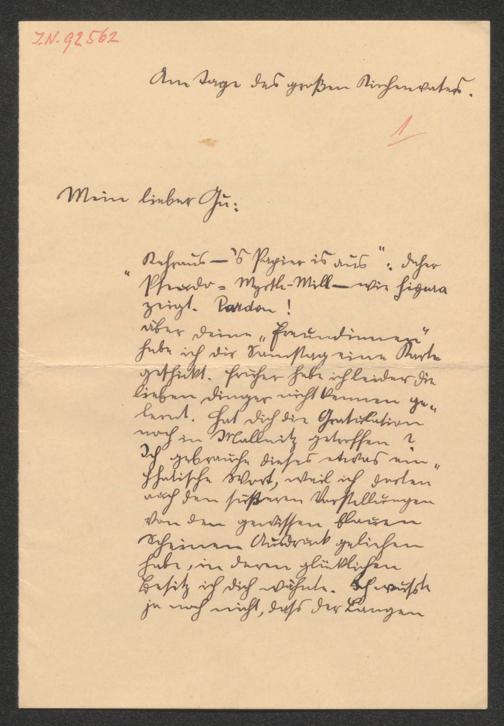 I.N. 92562
Am Tage des großen Kirchenvaters.
1
Mein lieber Gu:
Kehraus – 'S Papier is aus": daher
"Pseudo = Myrth-Mill – wie Figura
zeigt. Pardon!
Über deine „Freundinnen"
habe ich dir Samstag eine Karte
geschickt. Früher habe ich leider die
lieben Dinger nicht kennen ge-
lernt. Hat dich die Gratulation
noch in Mallnitz getroffen?
Ich gebrauche dieses etwas em-
phatische Wort, weil ich dorten
auch den süßeren Vorstellungen
von den gewissen blauen
Scheinen Ausdruck geliehen
habe, in deren glücklichen
Besitz ich dich wähnte. Ich wusste
ja noch nicht, dass der Langen